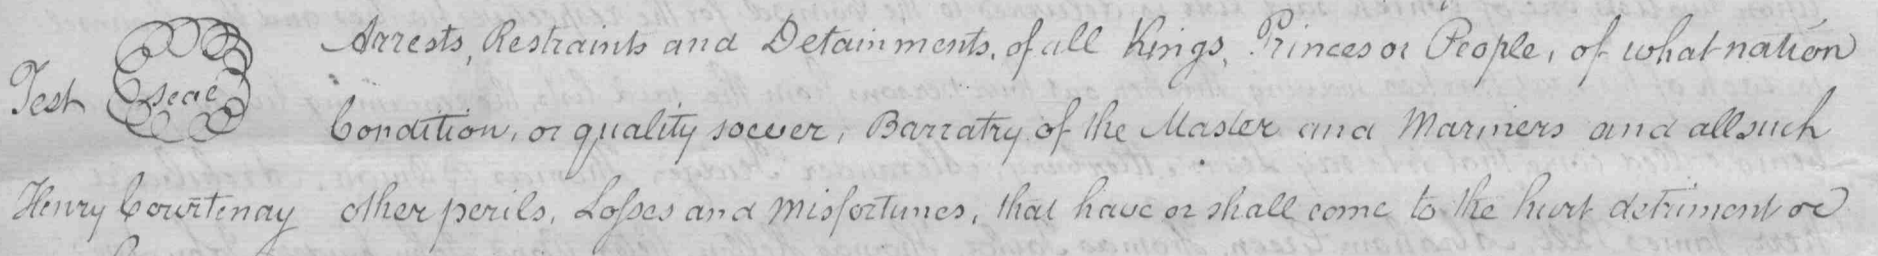 Arrests, Restraints and Detainments, of all Kings, Princes or People, of what nation
Test seal
Condition, or quality soever, Barratry of the Master and Mariners and all such
Henry Courtenay other perils, Losses and Misfortunes, that have or shall come to the hurt detriment or